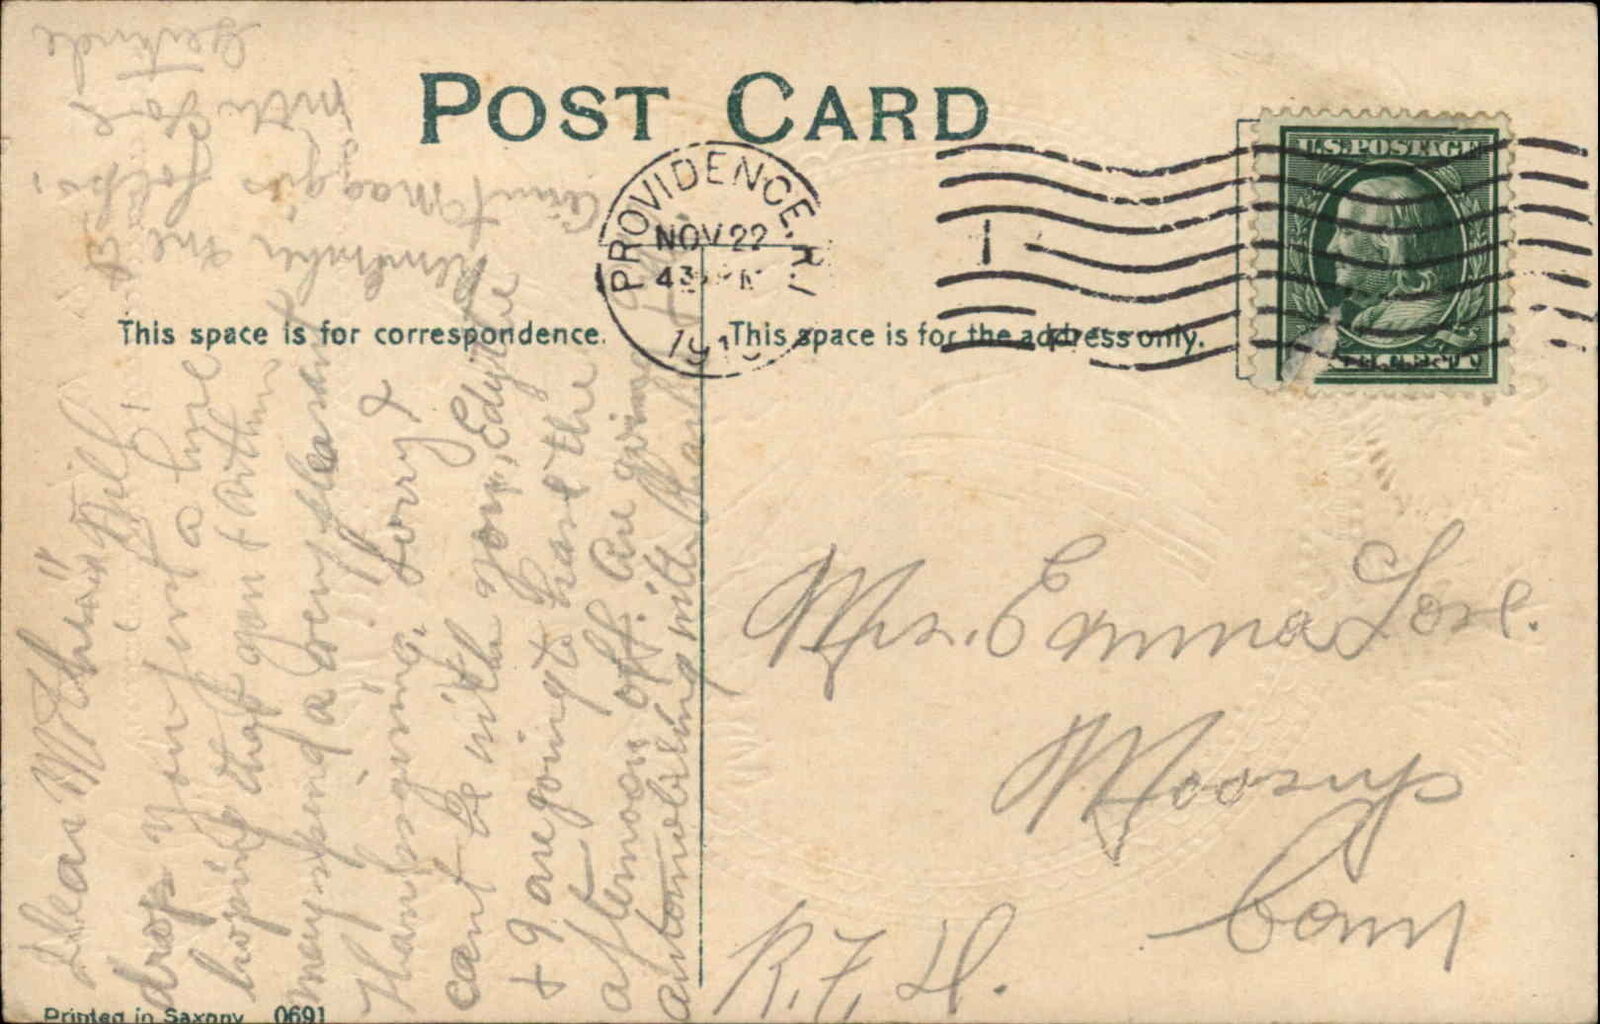 POST CARD
PROVIDENCE, R.I.
NOV 22
U.S. POSTAGE
This space is for correspondence.
This space is for the address only.
Dear Mother:
drop you just a line
hoping that you & Arthur
may spend a very pleasant
Thanksgiving. Sorry I
cant be with you, Edythe
+ I are going to have the
afternoon off. Are going
automobiling with
Remember me to
Aunt Maggie's folks.
With love
Gertrude
Mrs. Emma Love.
Moosup
Conn
R.F.D.
Printed in Saxony 0691